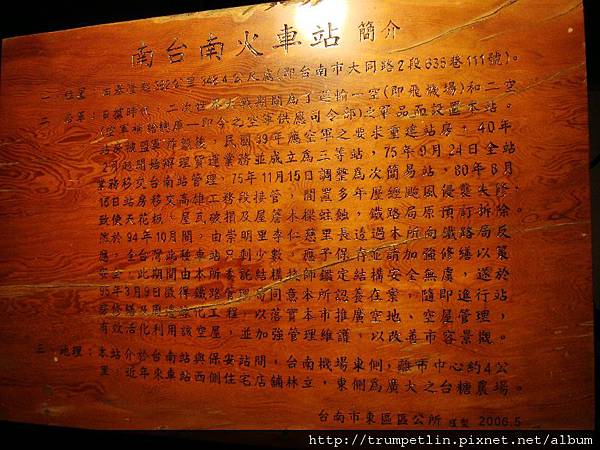 南台南火車站 簡介
一、位置：由基隆起362公里 公尺處(即台南市大同路2段635巷111號)。
二、沿革：日據時代，二次世界大戰期間為了運輸一空(即飛機場)和二空
(空軍補給總庫—即今之空軍供應司令部)之軍品而設置本站。
站房被盟軍炸毀後，民國39年應空軍之要求重建站房，40年
2月起開始辦理貨運業務並成立為三等站，75年9月24日全站
業務移交台南站管理，75年11月15日調整為次簡易站，80年8月
16日站房移交高雄工務段接管，閒置多年歷經颱風侵襲失修，
致使天花板、屋瓦破損及屋簷木樑蛀蝕，鐵路局原預訂拆除。
然於94年10月間，由崇明里李仁慈里長透過本所向鐵路局反
應，全台灣此種車站只剩少數，應予保存並請加強修繕以策
安全。此期間由本所委託結構技師鑑定結構安全無虞，遂於
95年3月9日徵得鐵路管理局同意本所認養在案，隨即進行站
房修繕及周邊綠化工程，以落實本市推廣空地、空屋管理，
有效活化利用該空屋，並加強管理維護，以改善市容景觀。
三、地理：本站介於台南站與保安站間，台南機場東側，離市中心約4公
里，近年來車站西側住宅店舖林立，東側為廣大之台糖農場。
台南市東區區公所 謹製 2006.5
http://trumpetlin.pixnet.net/album